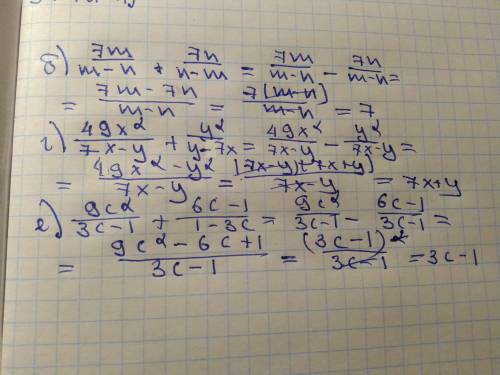 б) 7m/(m-n) + 7n/(n-m) = 7m/(m-n) - 7n/(m-n) =
= (7m-7n)/(m-n) = 7(m-n)/(m-n) = 7
г) 49x²/(7x-y) + y²/(y-7x) = 49x²/(7x-y) - y²/(7x-y) =
= (49x²-y²)/(7x-y) = (7x-y)(7x+y)/(7x-y) = 7x+y
е) 9c²/(3c-1) + (6c-1)/(1-3c) = 9c²/(3c-1) - (6c-1)/(3c-1) =
= (9c²-6c+1)/(3c-1) = (3c-1)²/(3c-1) = 3c-1